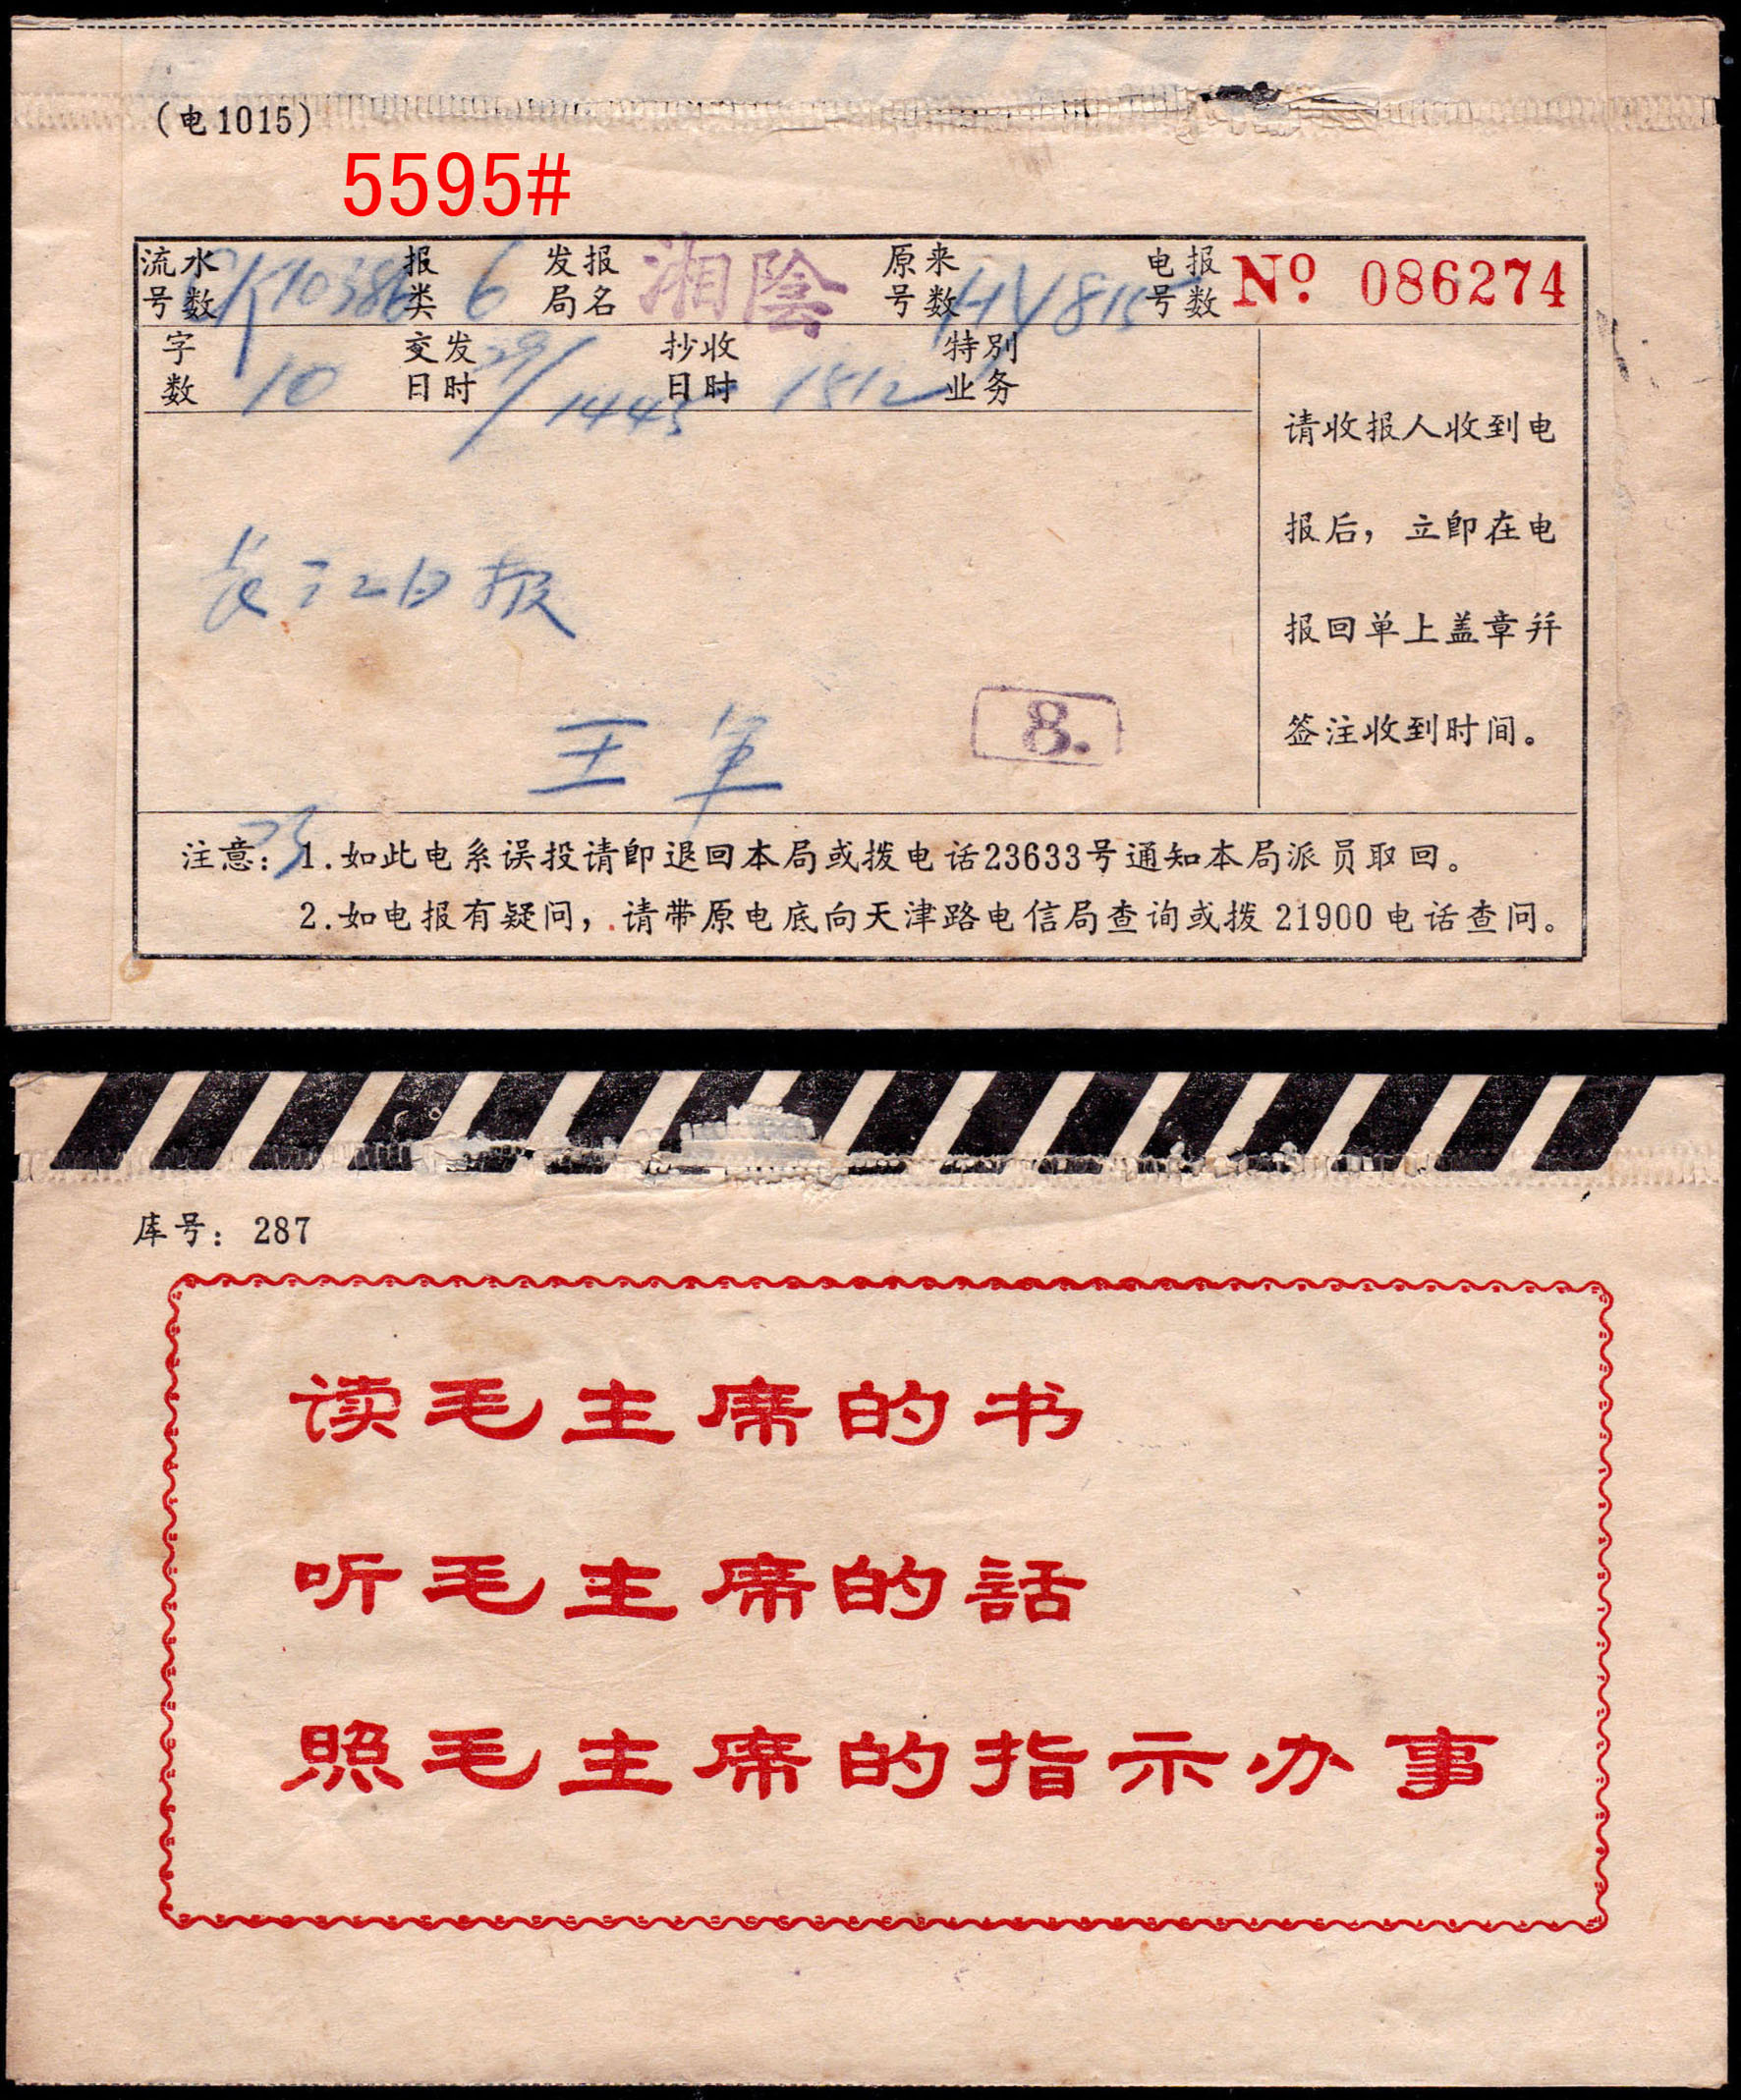 (电1015)
5595#
流水号数 K10386 报类 6 发报局名 湘陰 原来号数 HV815 电报号数 Nº 086274
字数 10 交发日时 29/1445 抄收日时 1512 特别业务
请收报人收到电
报后，立即在电
报回单上盖章并
签注收到时间。
长江日报
王军
8.
注意：1.如此电系误投请即退回本局或拨电话23633号通知本局派员取回。
2.如电报有疑问，请带原电底向天津路电信局查询或拨 21900 电话查问。
库号：287
读毛主席的书
听毛主席的話
照毛主席的指示办事